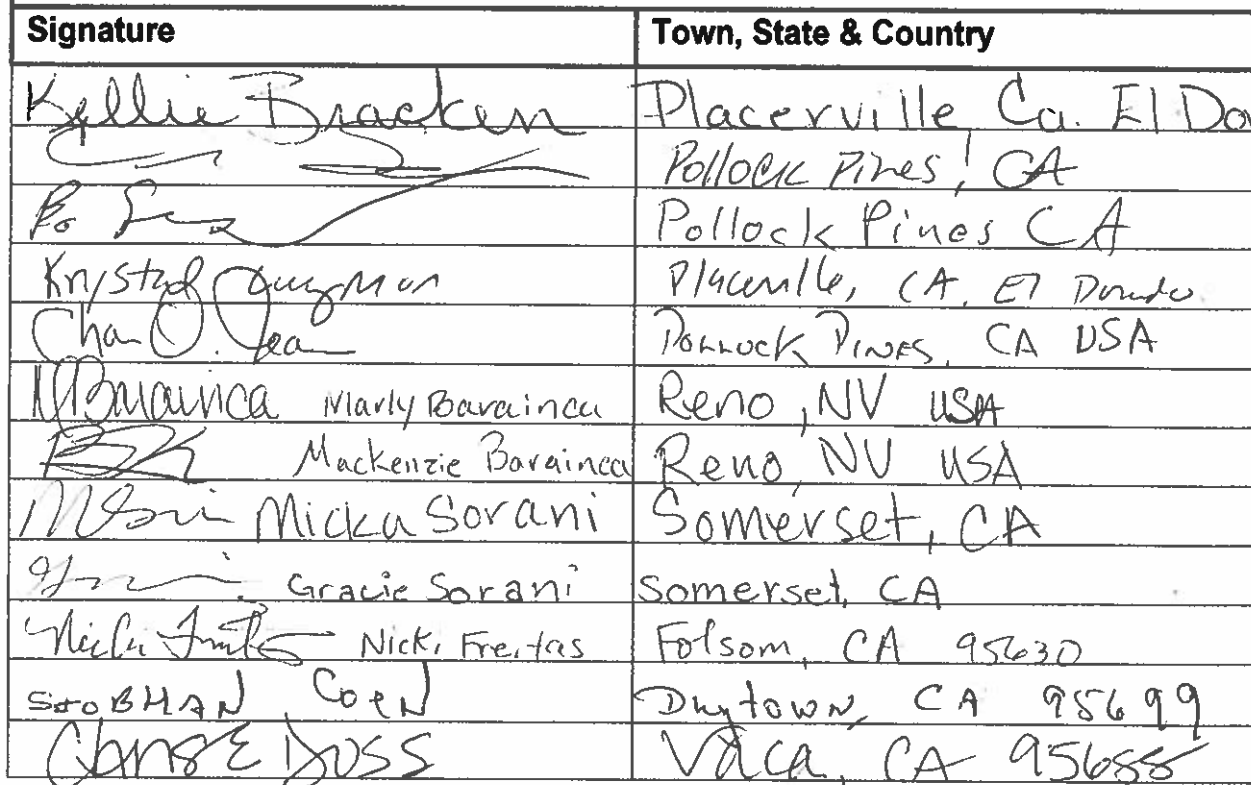 Signature Town, State & Country
Kellie Bracken Placerville, Ca. El Do
Pollock Pines, CA
Bo Pollock Pines CA
Krystal Guzman Placerville, CA, El Dorado
Pollock Pines, CA USA
MBarainca Marly Barainca Reno, NV USA
Mackenzie Barainca Reno, NV USA
Micka Sorani Somerset, CA
Gracie Sorani Somerset, CA
Nicki Freitas Nicki Freitas Folsom, CA 95630
SIOBHAN COEN Drytown, CA 95699
DOSS Vaca, CA 95688